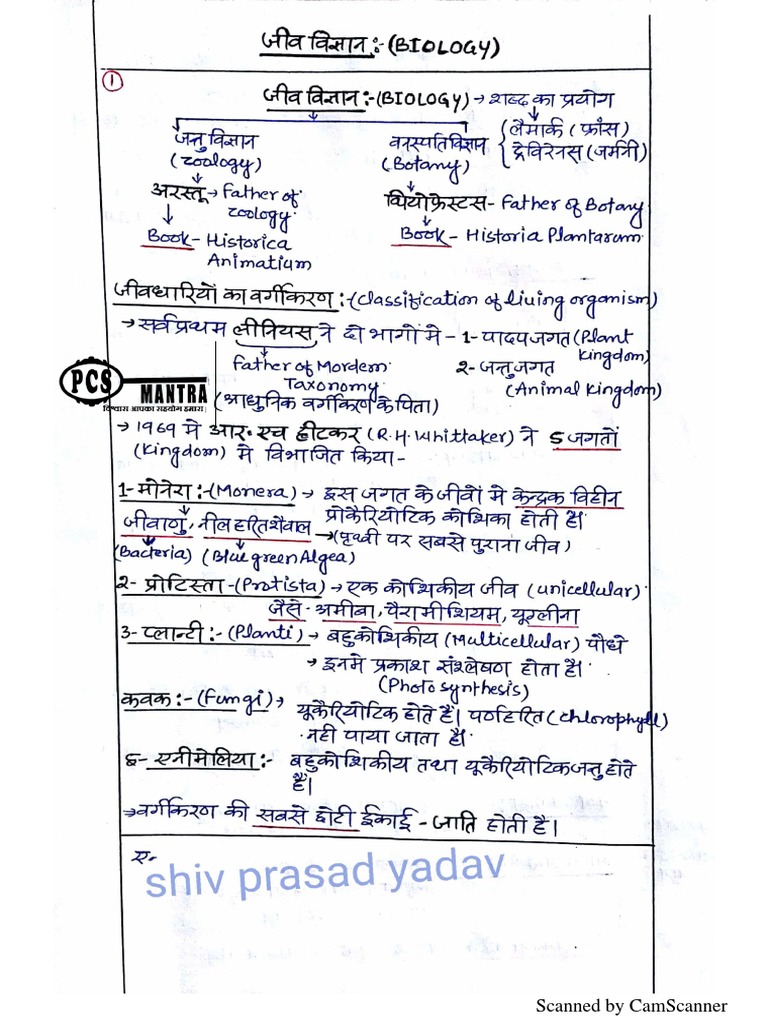 जीव विज्ञान:-(BIOLOGY)
① जीव विज्ञान:-(BIOLOGY) → शब्द का प्रयोग
जन्तु विज्ञान वनस्पति विज्ञान { लैमार्क (फ्रांस)
(Zoology) (Botany) ट्रेविरेनस (जर्मनी)
अरस्तू → Father of Zoology. थियोफ्रेस्टस - Father of Botany
Book - Historica Animatium Book - Historia Plantarum
जीवधारियों का वर्गीकरण:-(Classification of living organism)
→ सर्वप्रथम लीनियस ने दो भागो मे - 1- पादप जगत (Plant Kingdom)
Father of Mordern Taxonomy. 2- जन्तु जगत (Animal Kingdom)
(आधुनिक वर्गीकरण के पिता)
PCS MANTRA
विश्वास आपका सहयोग हमारा
→ 1969 मे आर. एच व्हीटकर (R.H. Whittaker) ने 5 जगतों
(Kingdom) मे विभाजित किया -
1- मोनेरा:-(Monera) → इस जगत के जीवों मे केन्द्रक विहीन
प्रोकैरियोटिक कोशिका होती है।
जीवाणु, नीलहरित शैवाल → (पृथ्वी पर सबसे पुराना जीव)
(Bacteria) (Blue green Algea)
2- प्रोटिस्ता -(Protista) → एक कोशिकीय जीव (unicellular)
जैसे- अमीबा, पैरामीशियम, यूग्लीना
3- प्लान्टी:-(Planti) → बहुकोशिकीय (Multicellular) पौधे
→ इनमे प्रकाश संश्लेषण होता है।
(Photosynthesis)
कवक:-(Fungi) → यूकैरियोटिक होते हैं। पर्णहरित (chlorophyll)
नही पाया जाता है।
एनीमेलिया:- बहुकोशिकीय तथा यूकैरियोटिक जन्तु होते
हैं।
→ वर्गीकरण की सबसे छोटी ईकाई - जाति होती है।
shiv prasad yadav
Scanned by CamScanner